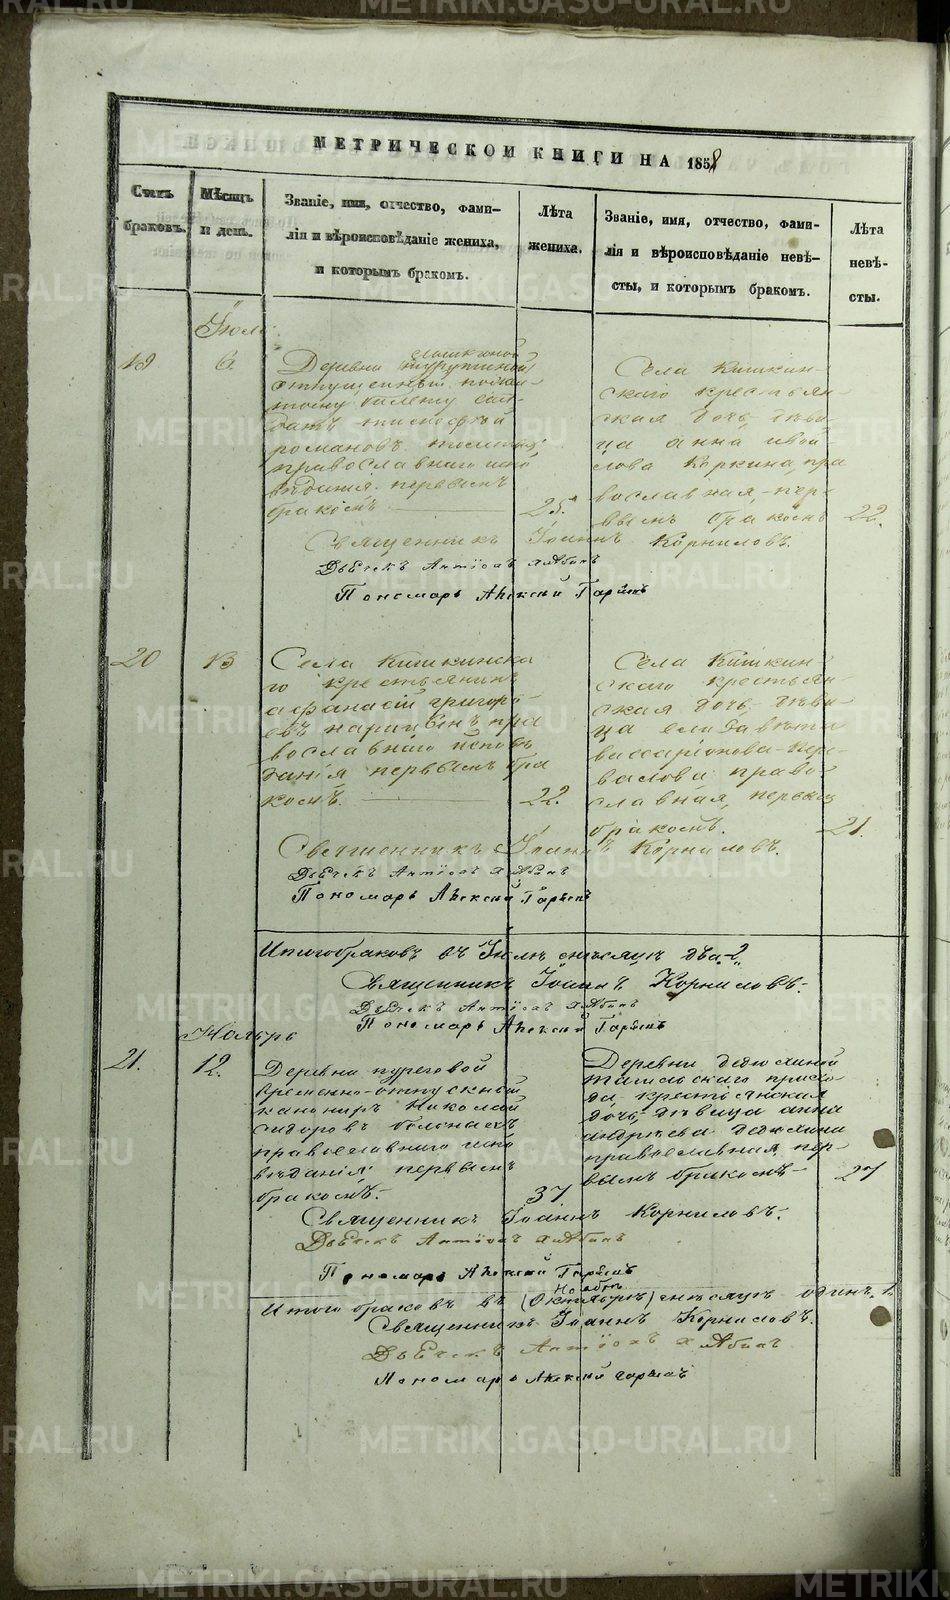 МЕТРИЧЕСКОЙ КНИГИ НА 1858
Счетъ браковъ.
Мѣсяцъ и день.
Званіе, имя, отчество, фами-
лія и вѣроисповѣданіе жениха,
и которымъ бракомъ.
Лѣта
жениха.
Званіе, имя, отчество, фами-
лія и вѣроисповѣданіе невѣ-
сты, и которымъ бракомъ.
Лѣта
невѣ-
сты.
Іюль
19
6
Деревни
отпущенный
билету сол-
датъ
романовъ
православнаго испо
вѣданія первымъ
бракомъ
25.
Села Кишкин-
скаго крестьян-
ская дочь дѣви-
ца анна
Коркина, пра
вославная, пер-
вымъ бракомъ
22.
Священникъ Іоаннъ Корниловъ.
Дьечекъ Антіохъ
Пономарь Алексѣй Гаряевъ
20
13
Села Кишкинска
го крестьянинъ
афанасій григорь-
евъ пра
вославнаго исповѣ
данія первымъ бра
комъ.
22.
Села Кишкин
скаго крестьян-
ская дочь дѣви-
ца елисавета
вассаріонова
право-
славная, первым
бракомъ.
21.
Священникъ Іоаннъ Корниловъ.
Дьечекъ Антіохъ
Пономарь Алексѣй Гаряевъ
Итого браковъ въ Іюлѣ мѣсяцѣ два 2.
Священникъ Іоаннъ Корниловъ.
Дьечекъ Антіохъ
Пономарь Алексѣй Гаряевъ
Ноябрь
21.
12.
Деревни пуреговой
временно-отпускной
канониръ Николай
сидоровъ
православнаго испо
вѣданія первымъ
бракомъ.
37
Деревни дедюхиной
прихо
да крестьянская
дочь, дѣвица анна
андреева дедюхина
православная, пер-
вымъ бракомъ
27
Священникъ Іоаннъ Корниловъ.
Дьечекъ Антіохъ
Пономарь Алексѣй Гаряевъ
Ноябрѣ
Итого браковъ въ (Октябрѣ) мѣсяцѣ одинъ 1.
Священникъ Іоаннъ Корниловъ.
Дьечекъ Антіохъ
Пономарь Алексѣй Гаряевъ
METRIKI.GASO-URAL.RU